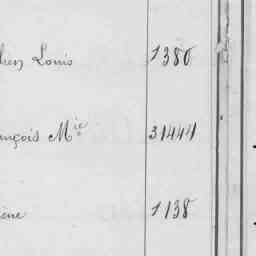 lien Louis 1380
ançois Mie 31444
ène 1138